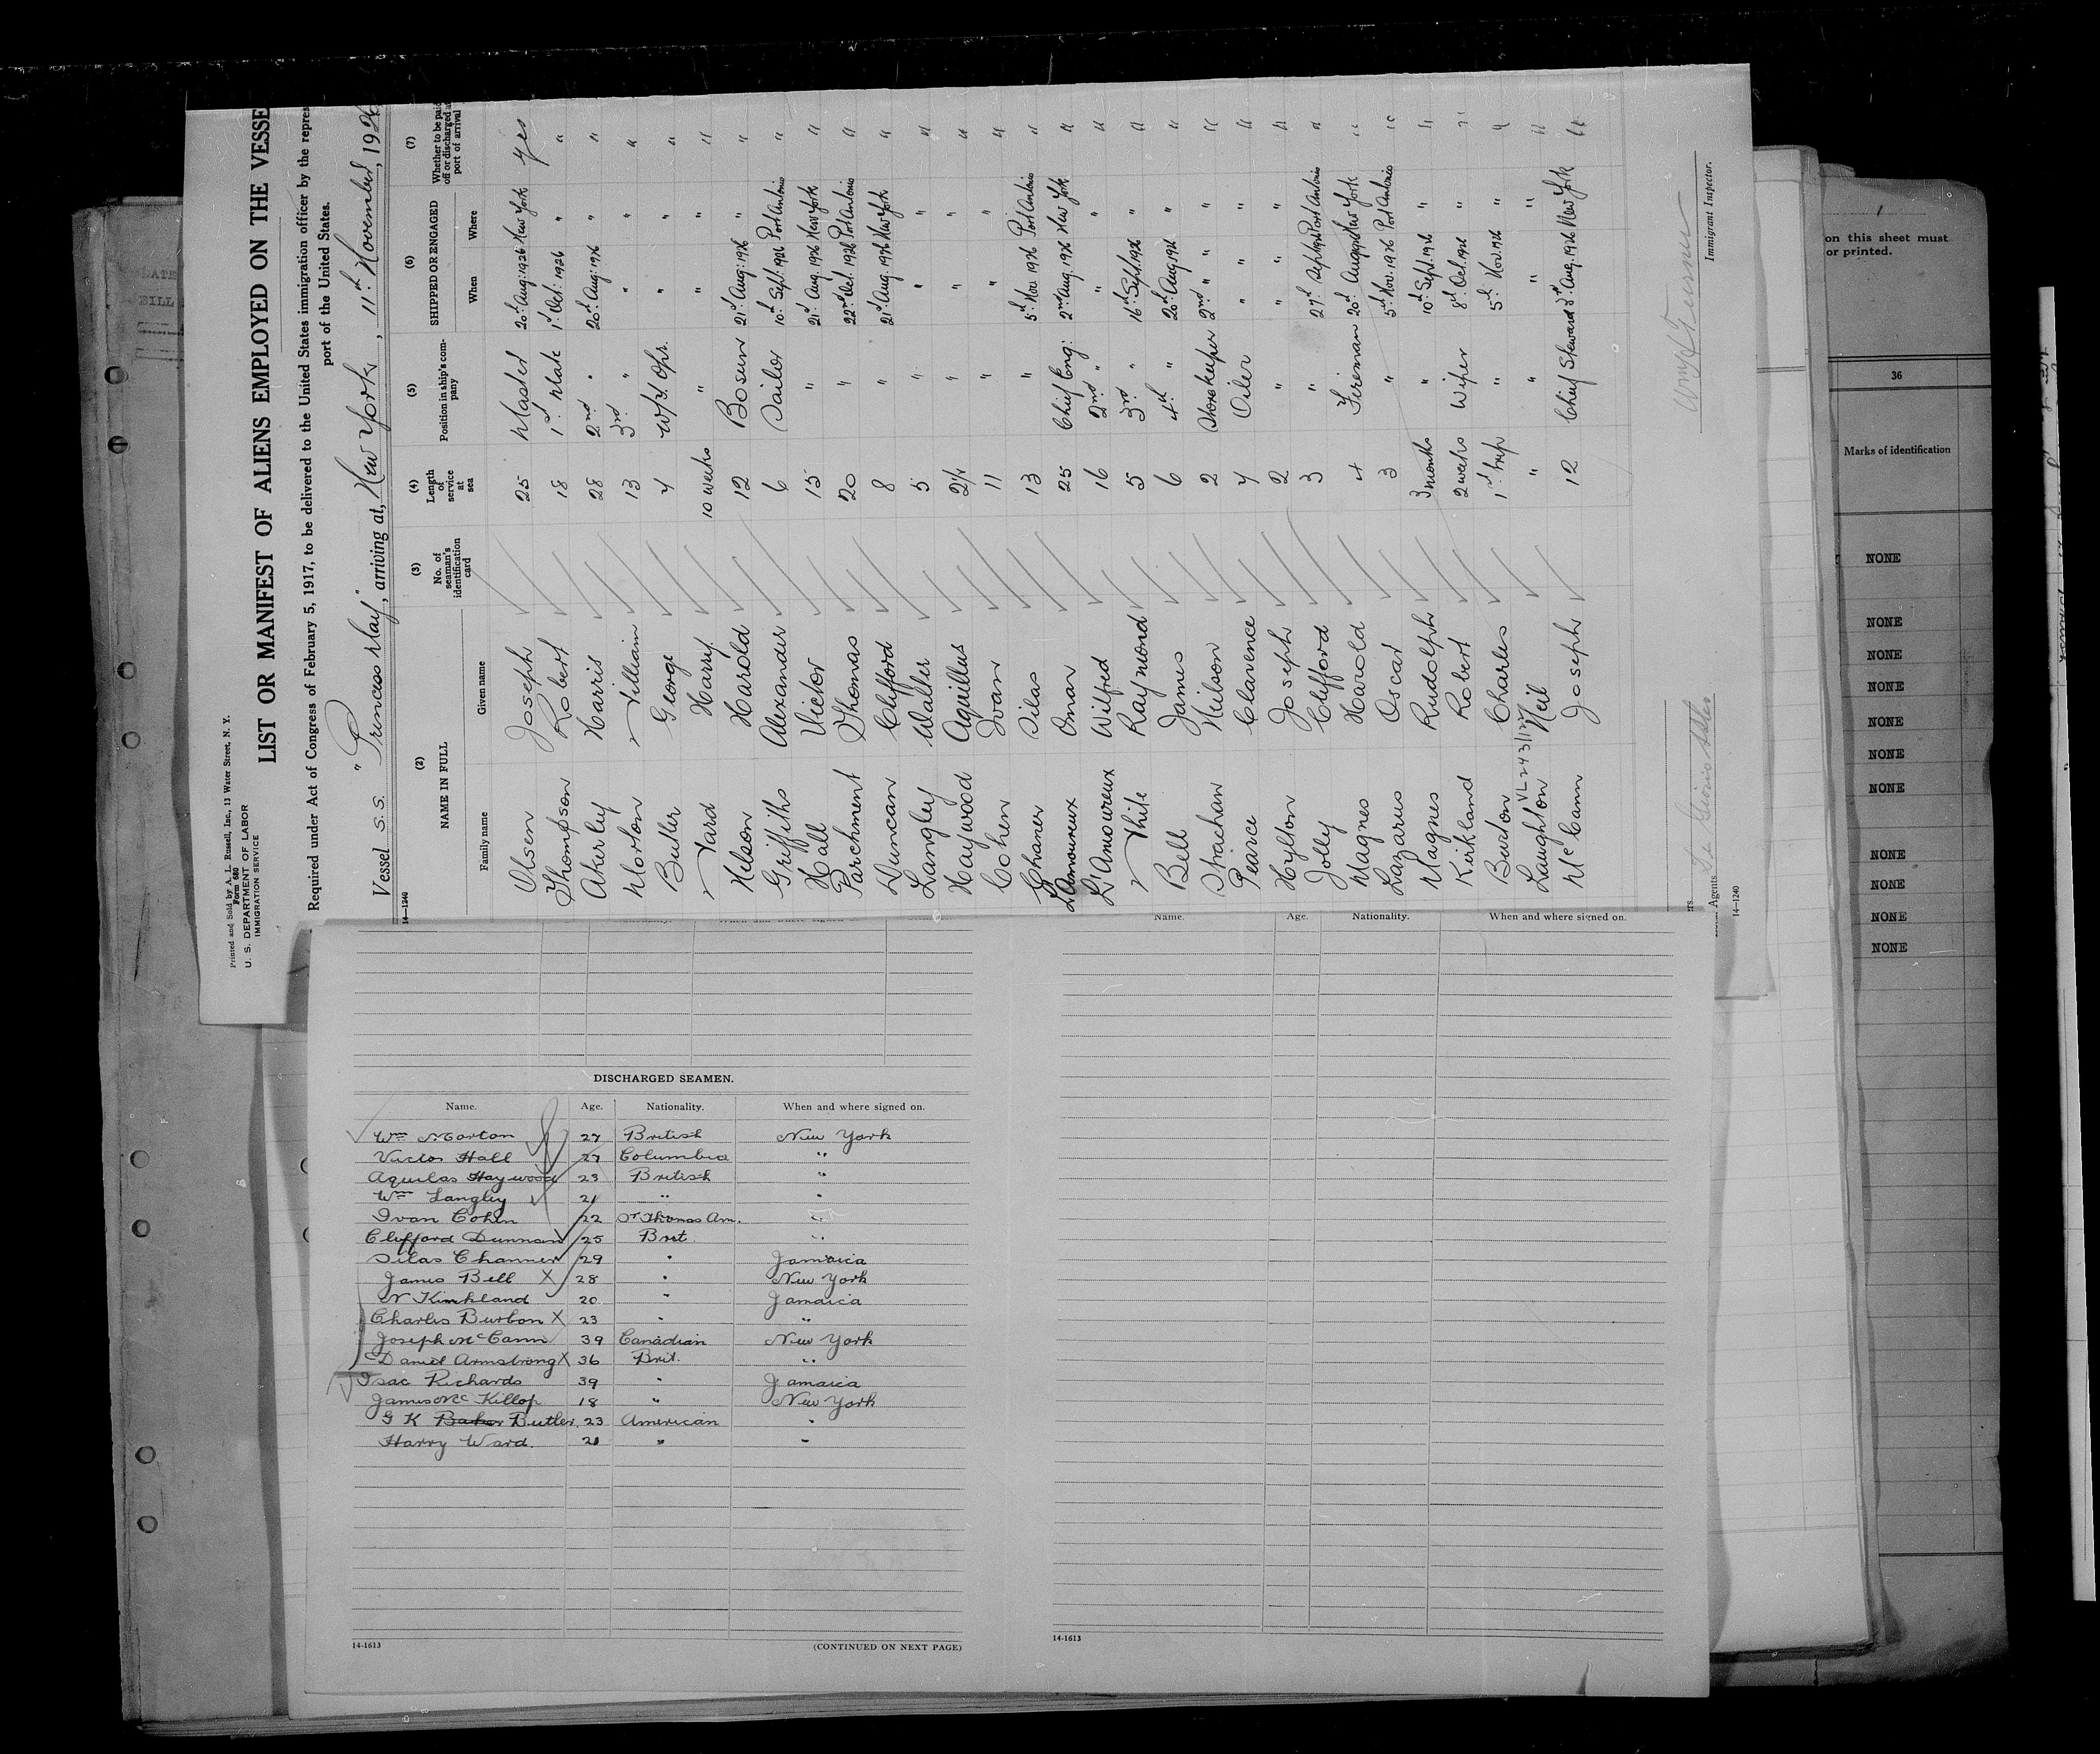 Printed and Sold by A. L. Russell, Inc., 13 Water Street, N. Y.
Form 680
U. S. DEPARTMENT OF LABOR
IMMIGRATION SERVICE
LIST OR MANIFEST OF ALIENS EMPLOYED ON THE VESSE
Required under Act of Congress of February 5, 1917, to be delivered to the United States immigration officer by the repres
port of the United States.
Vessel S.S. "Princess May", arriving at, New York, 11th November, 1926
14—1240
(2) (3) (4) (5) (6) (7)
NAME IN FULL No. of seaman's identification card Length of service at sea Position in ship's company SHIPPED OR ENGAGED Whether to be paid off or discharged at port of arrival
Family name Given name When Where
Olsen Joseph 25 Master 20th Aug: 1926 New York Yes
Thompson Robert 18 1st Mate 1st Oct: 1926 " "
Aherley Harris 28 2nd " 20th Aug: 1926 " "
Morton William 13 3rd " " " "
Butler George 4 W/T. Opr. " " "
Ward Harry 10 weeks " " " "
Nelson Harold 12 Bosun 21st Aug: 1926 " "
Griffiths Alexander 6 Sailor 10th Sept: 1926 Port Antonio "
Hall Victor 15 " 21st Aug. 1926 New York "
Parchment Thomas 20 " 22nd Oct. 1926 Port Antonio "
Duncan Clifford 8 " 21st Aug. 1926 New York "
Langley Walter 5 " " " "
Haywood Aquillus 2½ " " " "
Cohen Ivan 11 " " " "
Chaner Silas 13 " 5th Nov. 1926 Port Antonio "
L'Amoureux Omar 25 Chief Eng: 2nd Aug. 1926 New York "
L'Amoureux Wilfred 16 2nd " " " "
White Raymond 5 3rd " 16th Sept. 1926 " "
Bell James 6 4th " 20th Aug. 1926 " "
Strachan Neilson 2 Storekeeper 2nd " " " "
Pearce Clarence 4 Oiler " " "
Hylton Joseph 2 " " " "
Jolley Clifford 3 " 27th Sept 1926 Port Antonio "
Magnes Harold 4 Fireman 20th Aug 1926 New York "
Lazarus Oscar 3 " 5th Nov. 1926 Port Antonio "
Magnes Rudolph 3 months " 10th Sept. 1926 " "
Kirkland Robert 2 weeks Wiper 8th Oct. 1926 " "
Burton Charles 1st trip " 5th Nov. 1926 " "
VL 243/127
Laughton Neil " " " " "
McCann Joseph 12 Chief Steward 3rd Aug. 1926 New York "
Immigrant Inspector.
Agents
14—1240
on this sheet must
or printed.
36
Marks of identification
NONE
NONE
NONE
NONE
NONE
NONE
NONE
NONE
NONE
NONE
NONE
Name. Age. Nationality. When and where signed on.
DISCHARGED SEAMEN.
Name. Age. Nationality. When and where signed on.
Wm Morton 27 British New York
Victor Hall 27 Columbia "
Aquilas Haywood 23 British "
Wm Langley 21 " "
Ivan Cohen 22 St Thomas Am. "
Clifford Dunnan 25 Brit "
Silas Channer 29 " Jamaica
James Bell X 28 " New York
N Kinkland 20 " Jamaica
Charles Burbon X 23 " "
Joseph McCann 39 Canadian New York
Daniel Armstrong X 36 Brit. "
Isac Richards 39 " Jamaica
James McKillop 18 " New York
G K Baker Butler. 23 American "
Harry Ward. 21 " "
14-1613
(CONTINUED ON NEXT PAGE)
14-1613